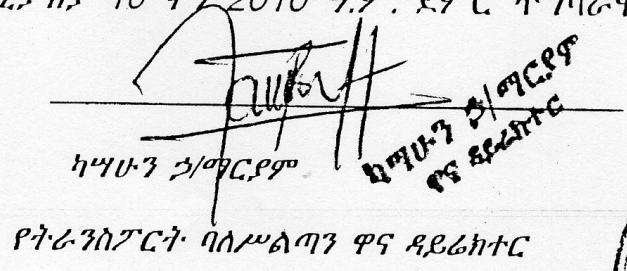 2010 ዓ.ም.
ካሣሁን ኃ/ማርያም
ካሣሁን ኃ/ማርያም
ዋና ዳይሬክተር
የትራንስፖርት ባለሥልጣን ዋና ዳይሬክተር